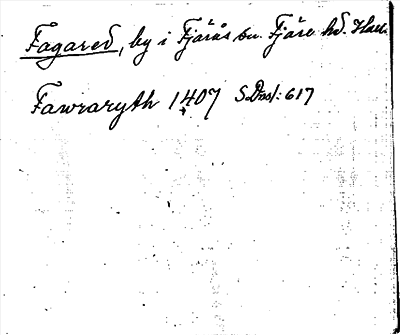 Fagared, by i Fjärås sn. Fjäre hd. Hall.
Fawraryth 1407 SDns1:617